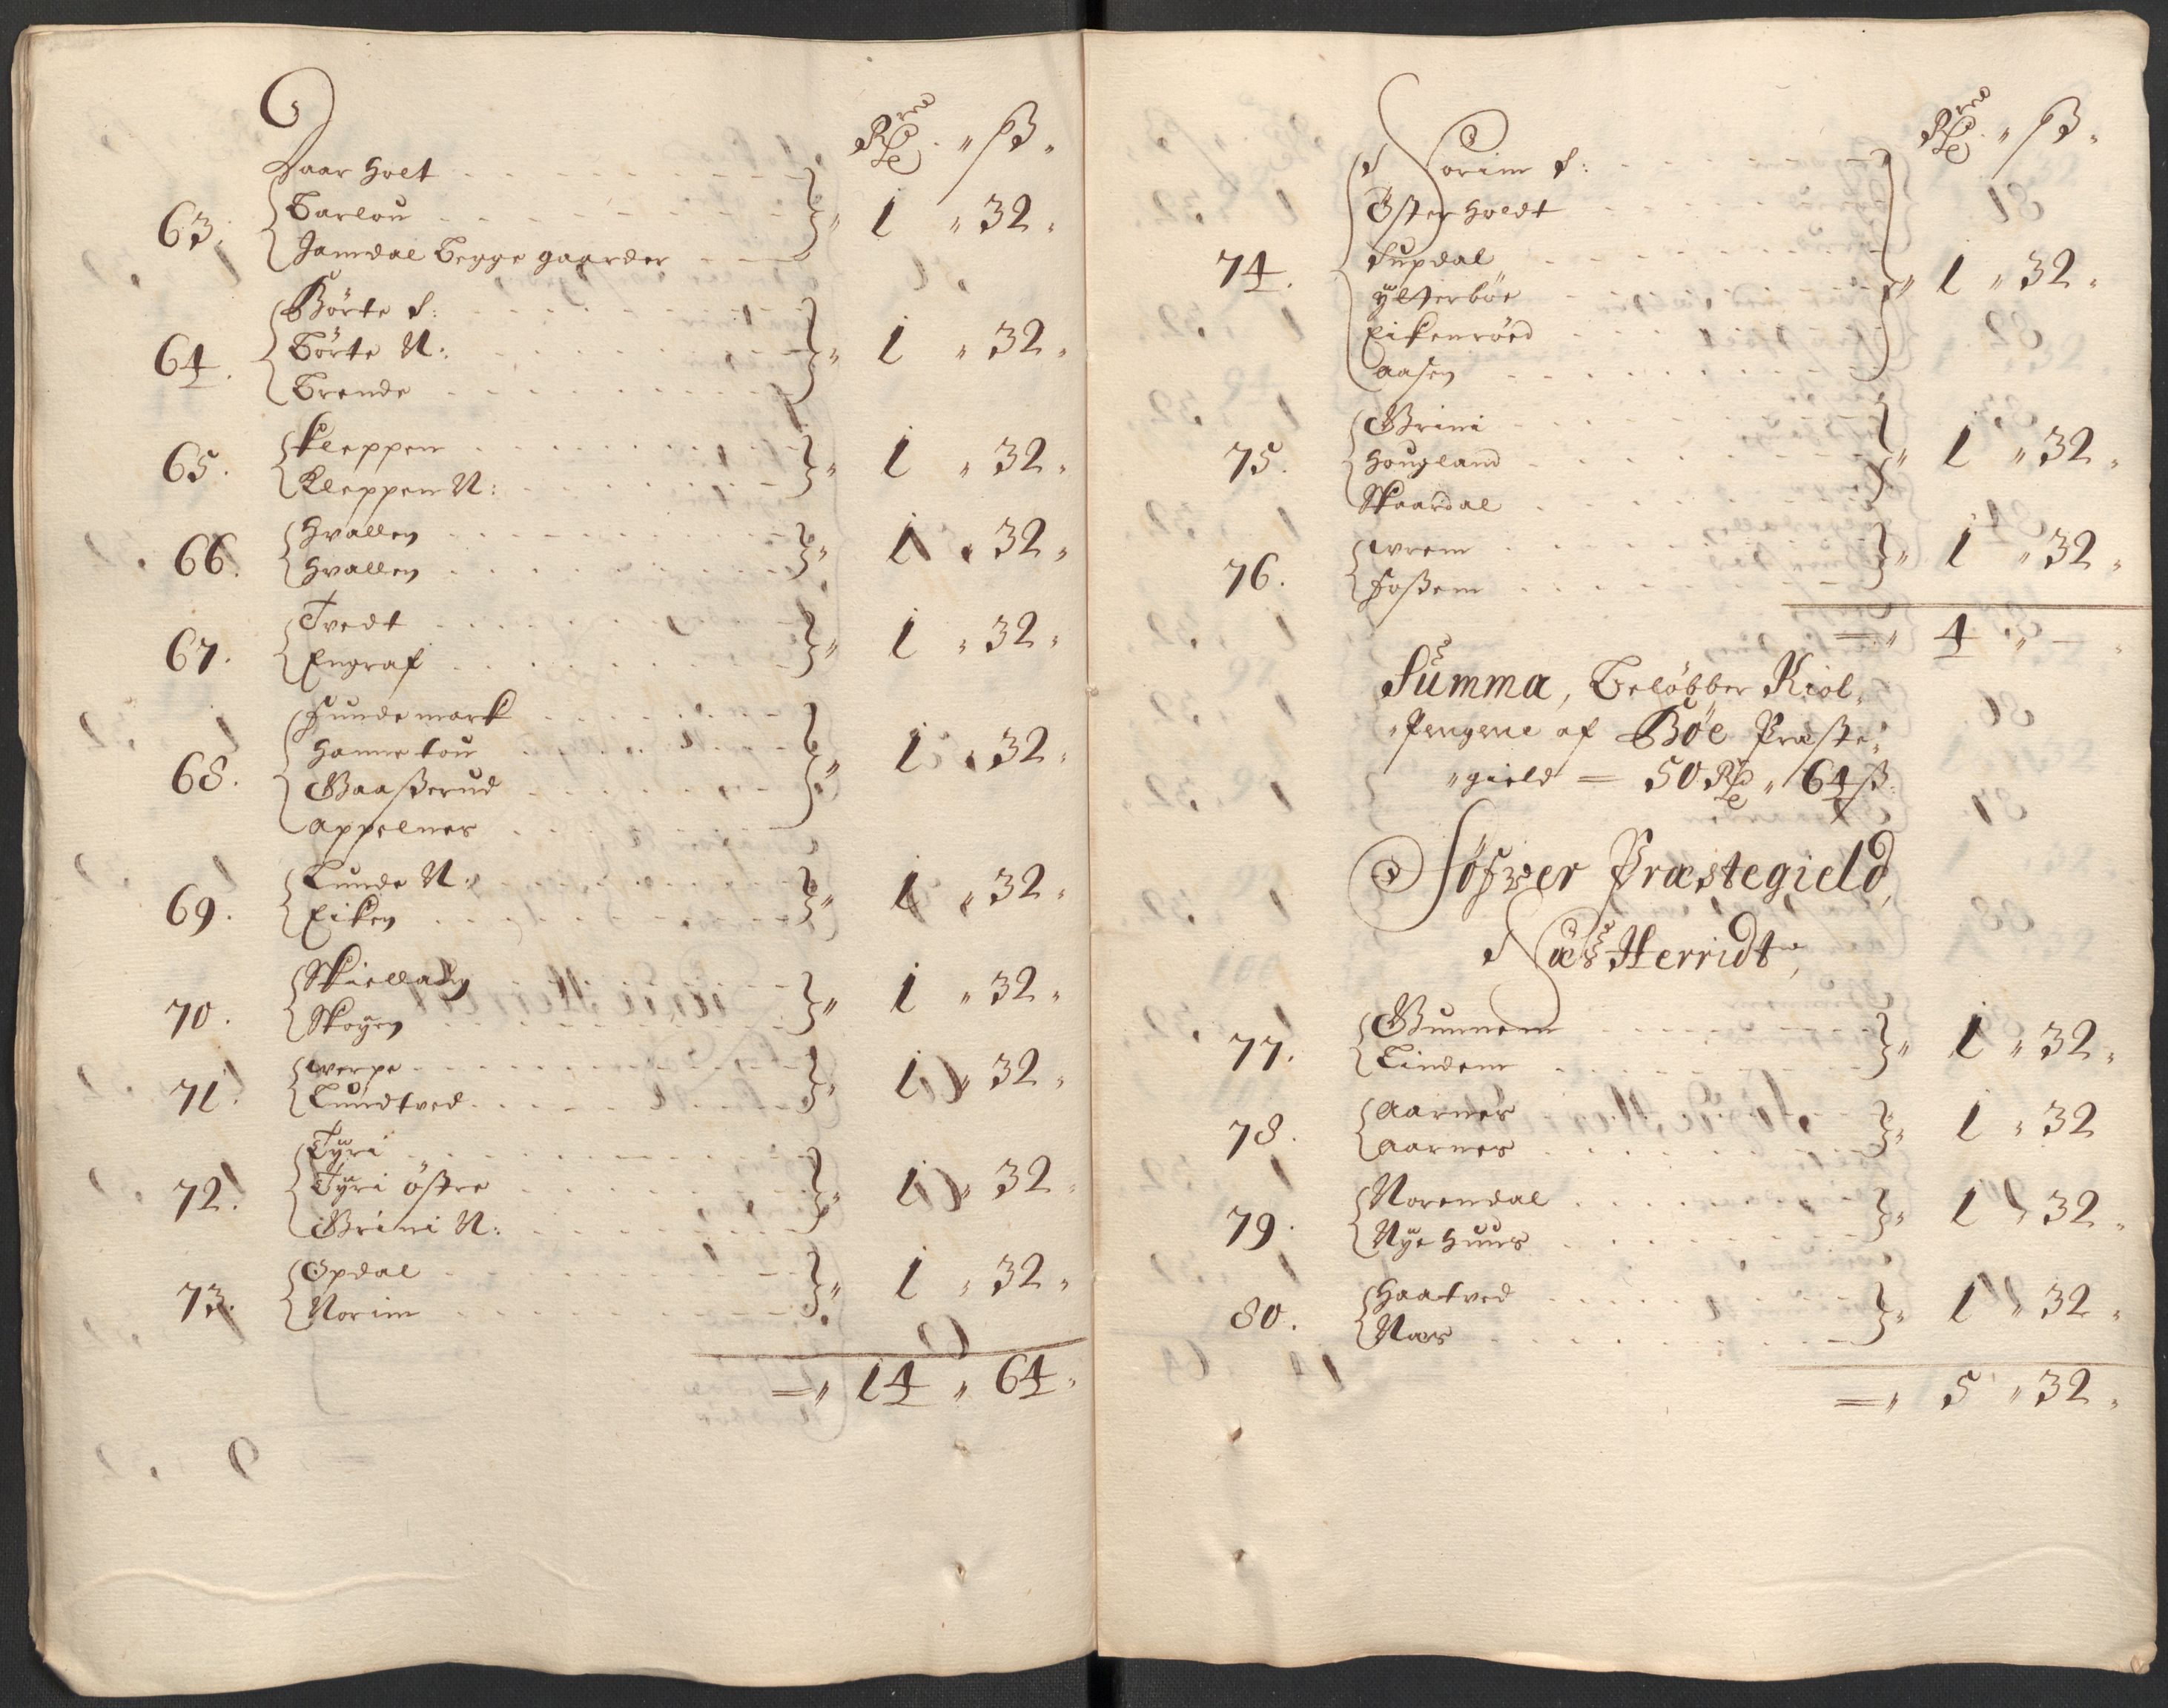 Rdr. " ß.
Daarholt
63. Barlou " 1 " 32 "
Jamdal begge gaarder
Børte S:
64. Børte N: " 1 " 32 "
Brende
65. Kleppen " 1 " 32 "
Kleppen N:
66. Hvallen " 1 " 32 "
Hvallen
67. Tvedt " 1 " 32 "
Engraf
Hundemark
68. Hannetou " 1 " 32 "
Gaaßerud
Appelnes
69. Lunde N: " 1 " 32 "
Eiken
70. Skiellaug " 1 " 32 "
Skoyen
71. Werpe " 1 " 32 "
Lundtved
Tyri
72. Tyri östre " 1 " 32 "
Grini N:
73. Opdal " 1 " 32 "
Norim
= " 14 " 64 "
Rdr. " ß "
Norim S:
Österholdt
74. Supdal " 1 " 32 "
Ytterböe
Eikenröed
Aasen
75. Grini " 1 " 32 "
Hougland
Skaardal
76. Wrem " 1 " 32 "
Foßem
= " 4 " —
Summa, Beløbber Kiol-
"Pengene af Bøe Præste-
"gield = 50 Rdr " 64 ß.
Söfver Præstegield,
Næs Herridt,
77. Gunnem " 1 " 32 "
Lindem
78. Aarnes " 1 " 32
Aarnes
79. Norendal " 1 " 32 "
Nye Huus
80. Haatved " 1 " 32 "
Næs
= " 5 " 32 "